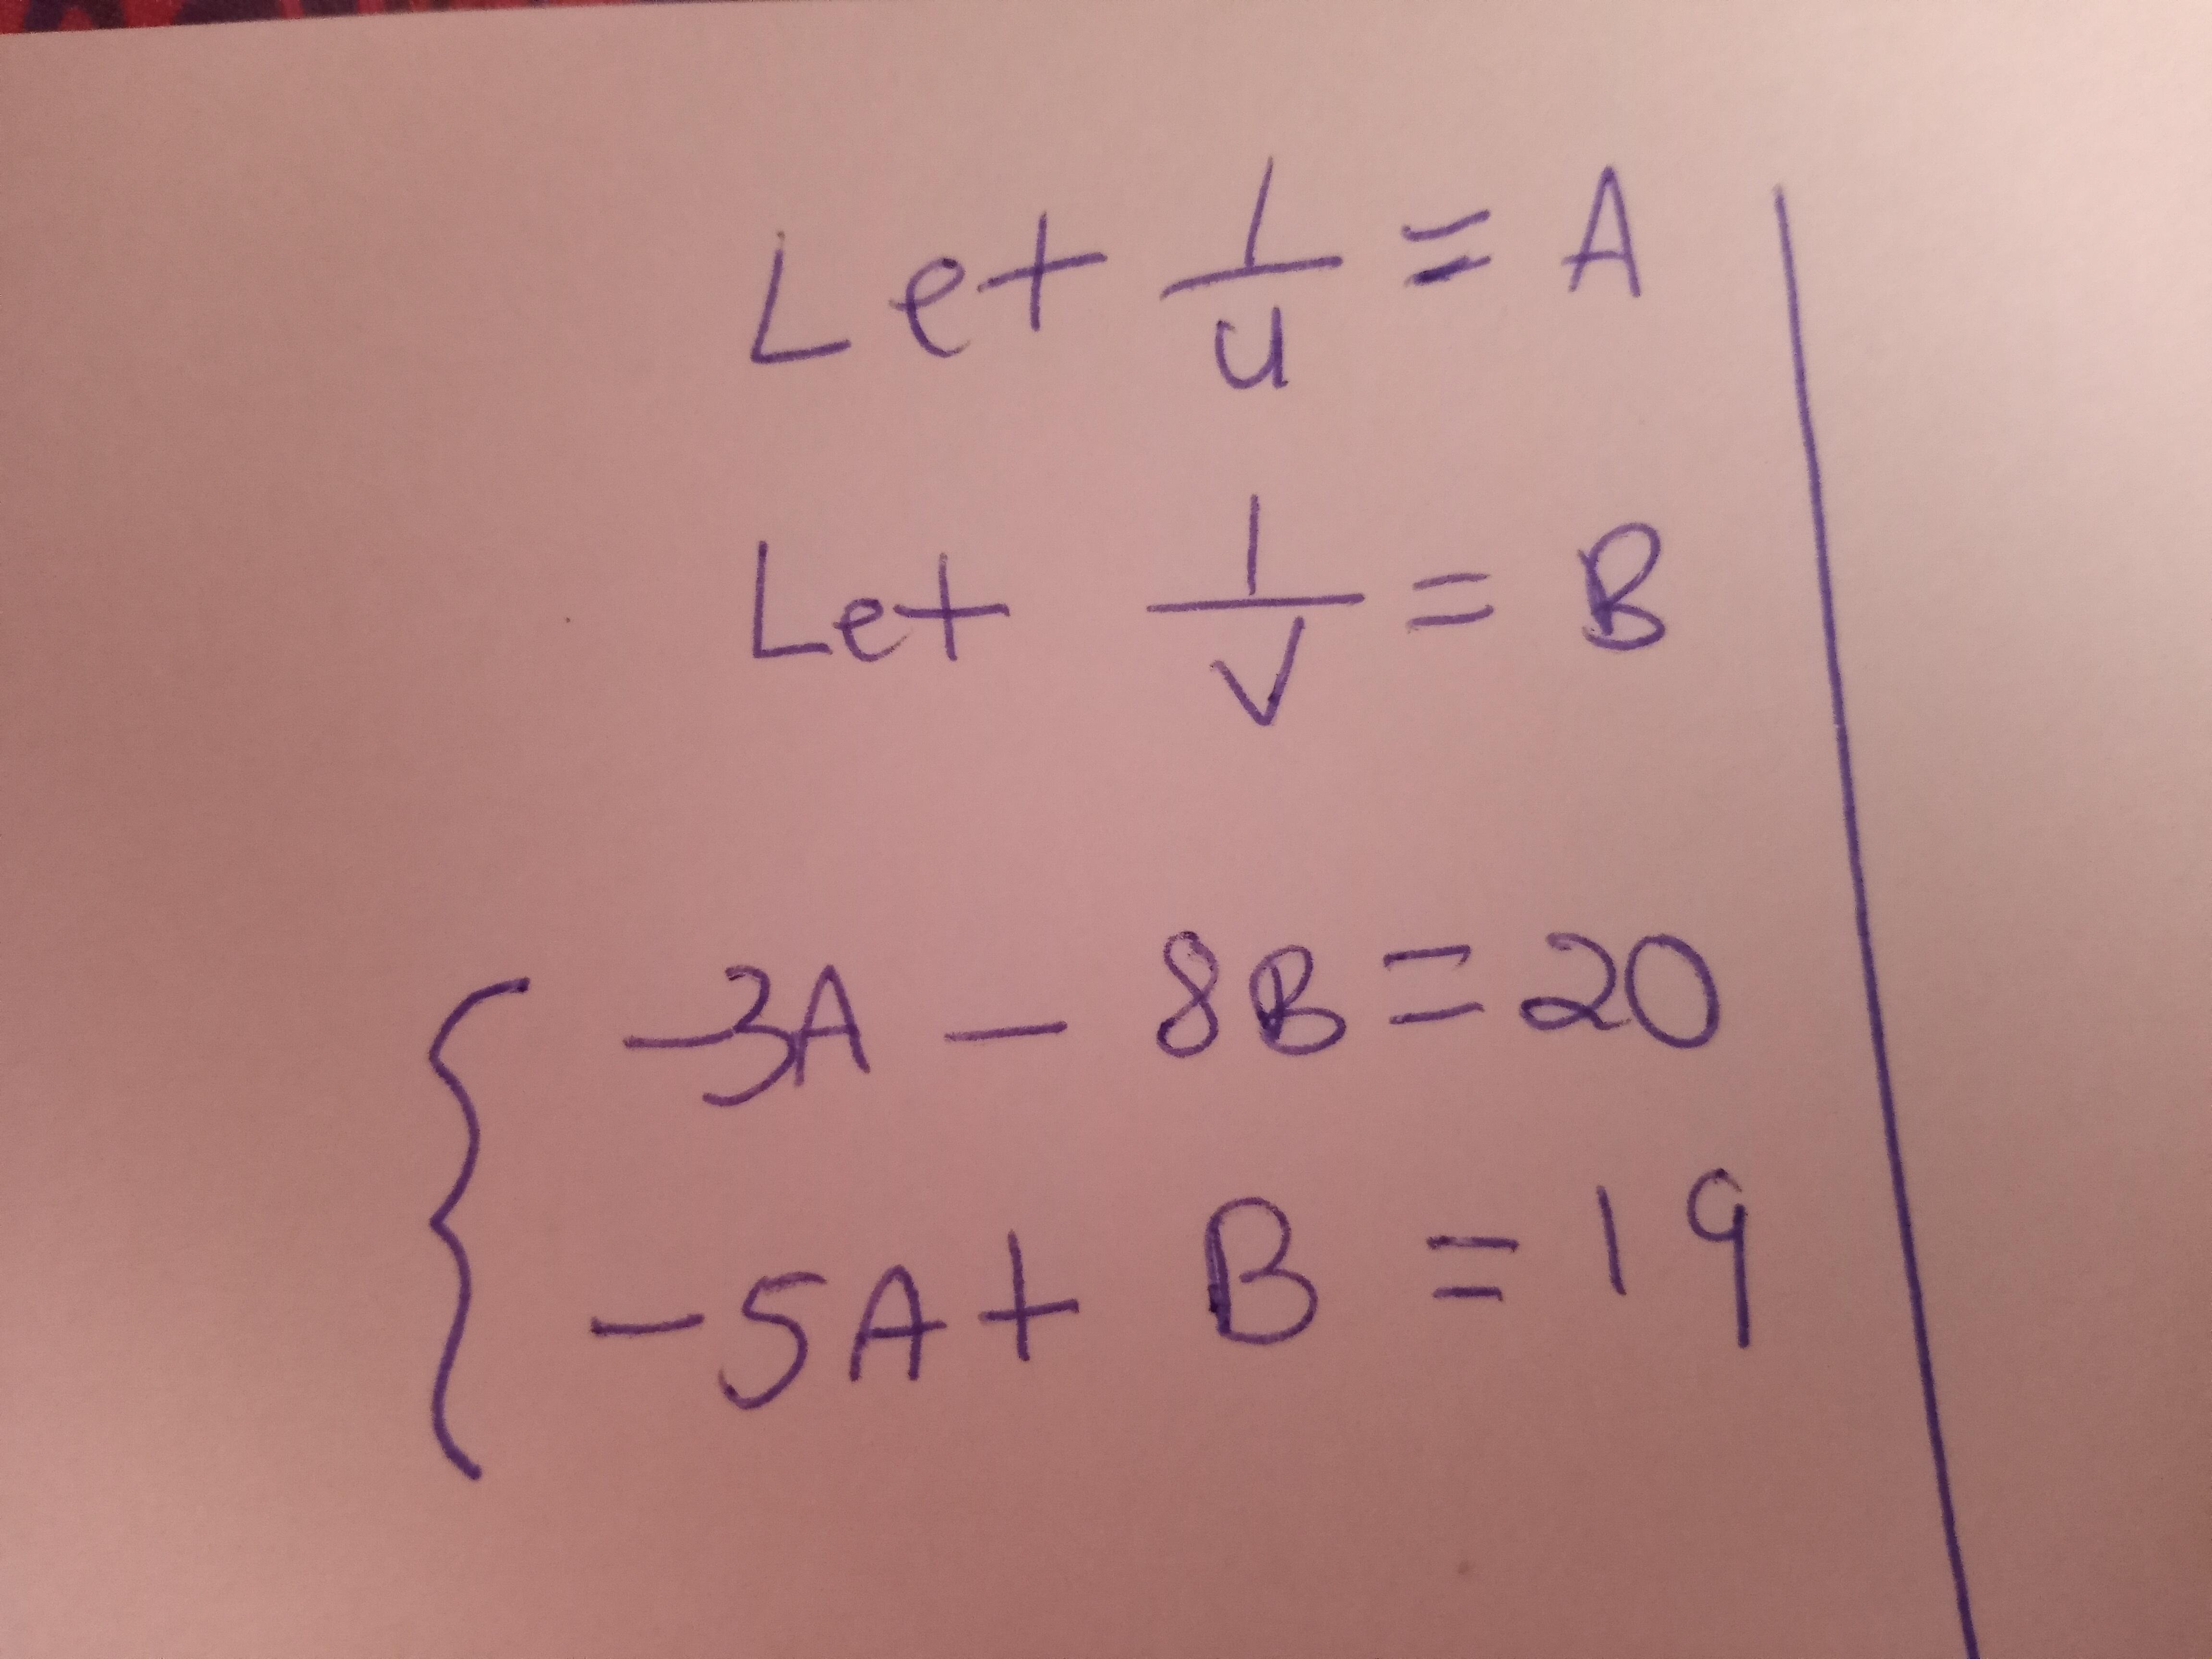 Let 1/u = A
Let 1/v = B
-3A - 8B = 20
-5A + B = 19